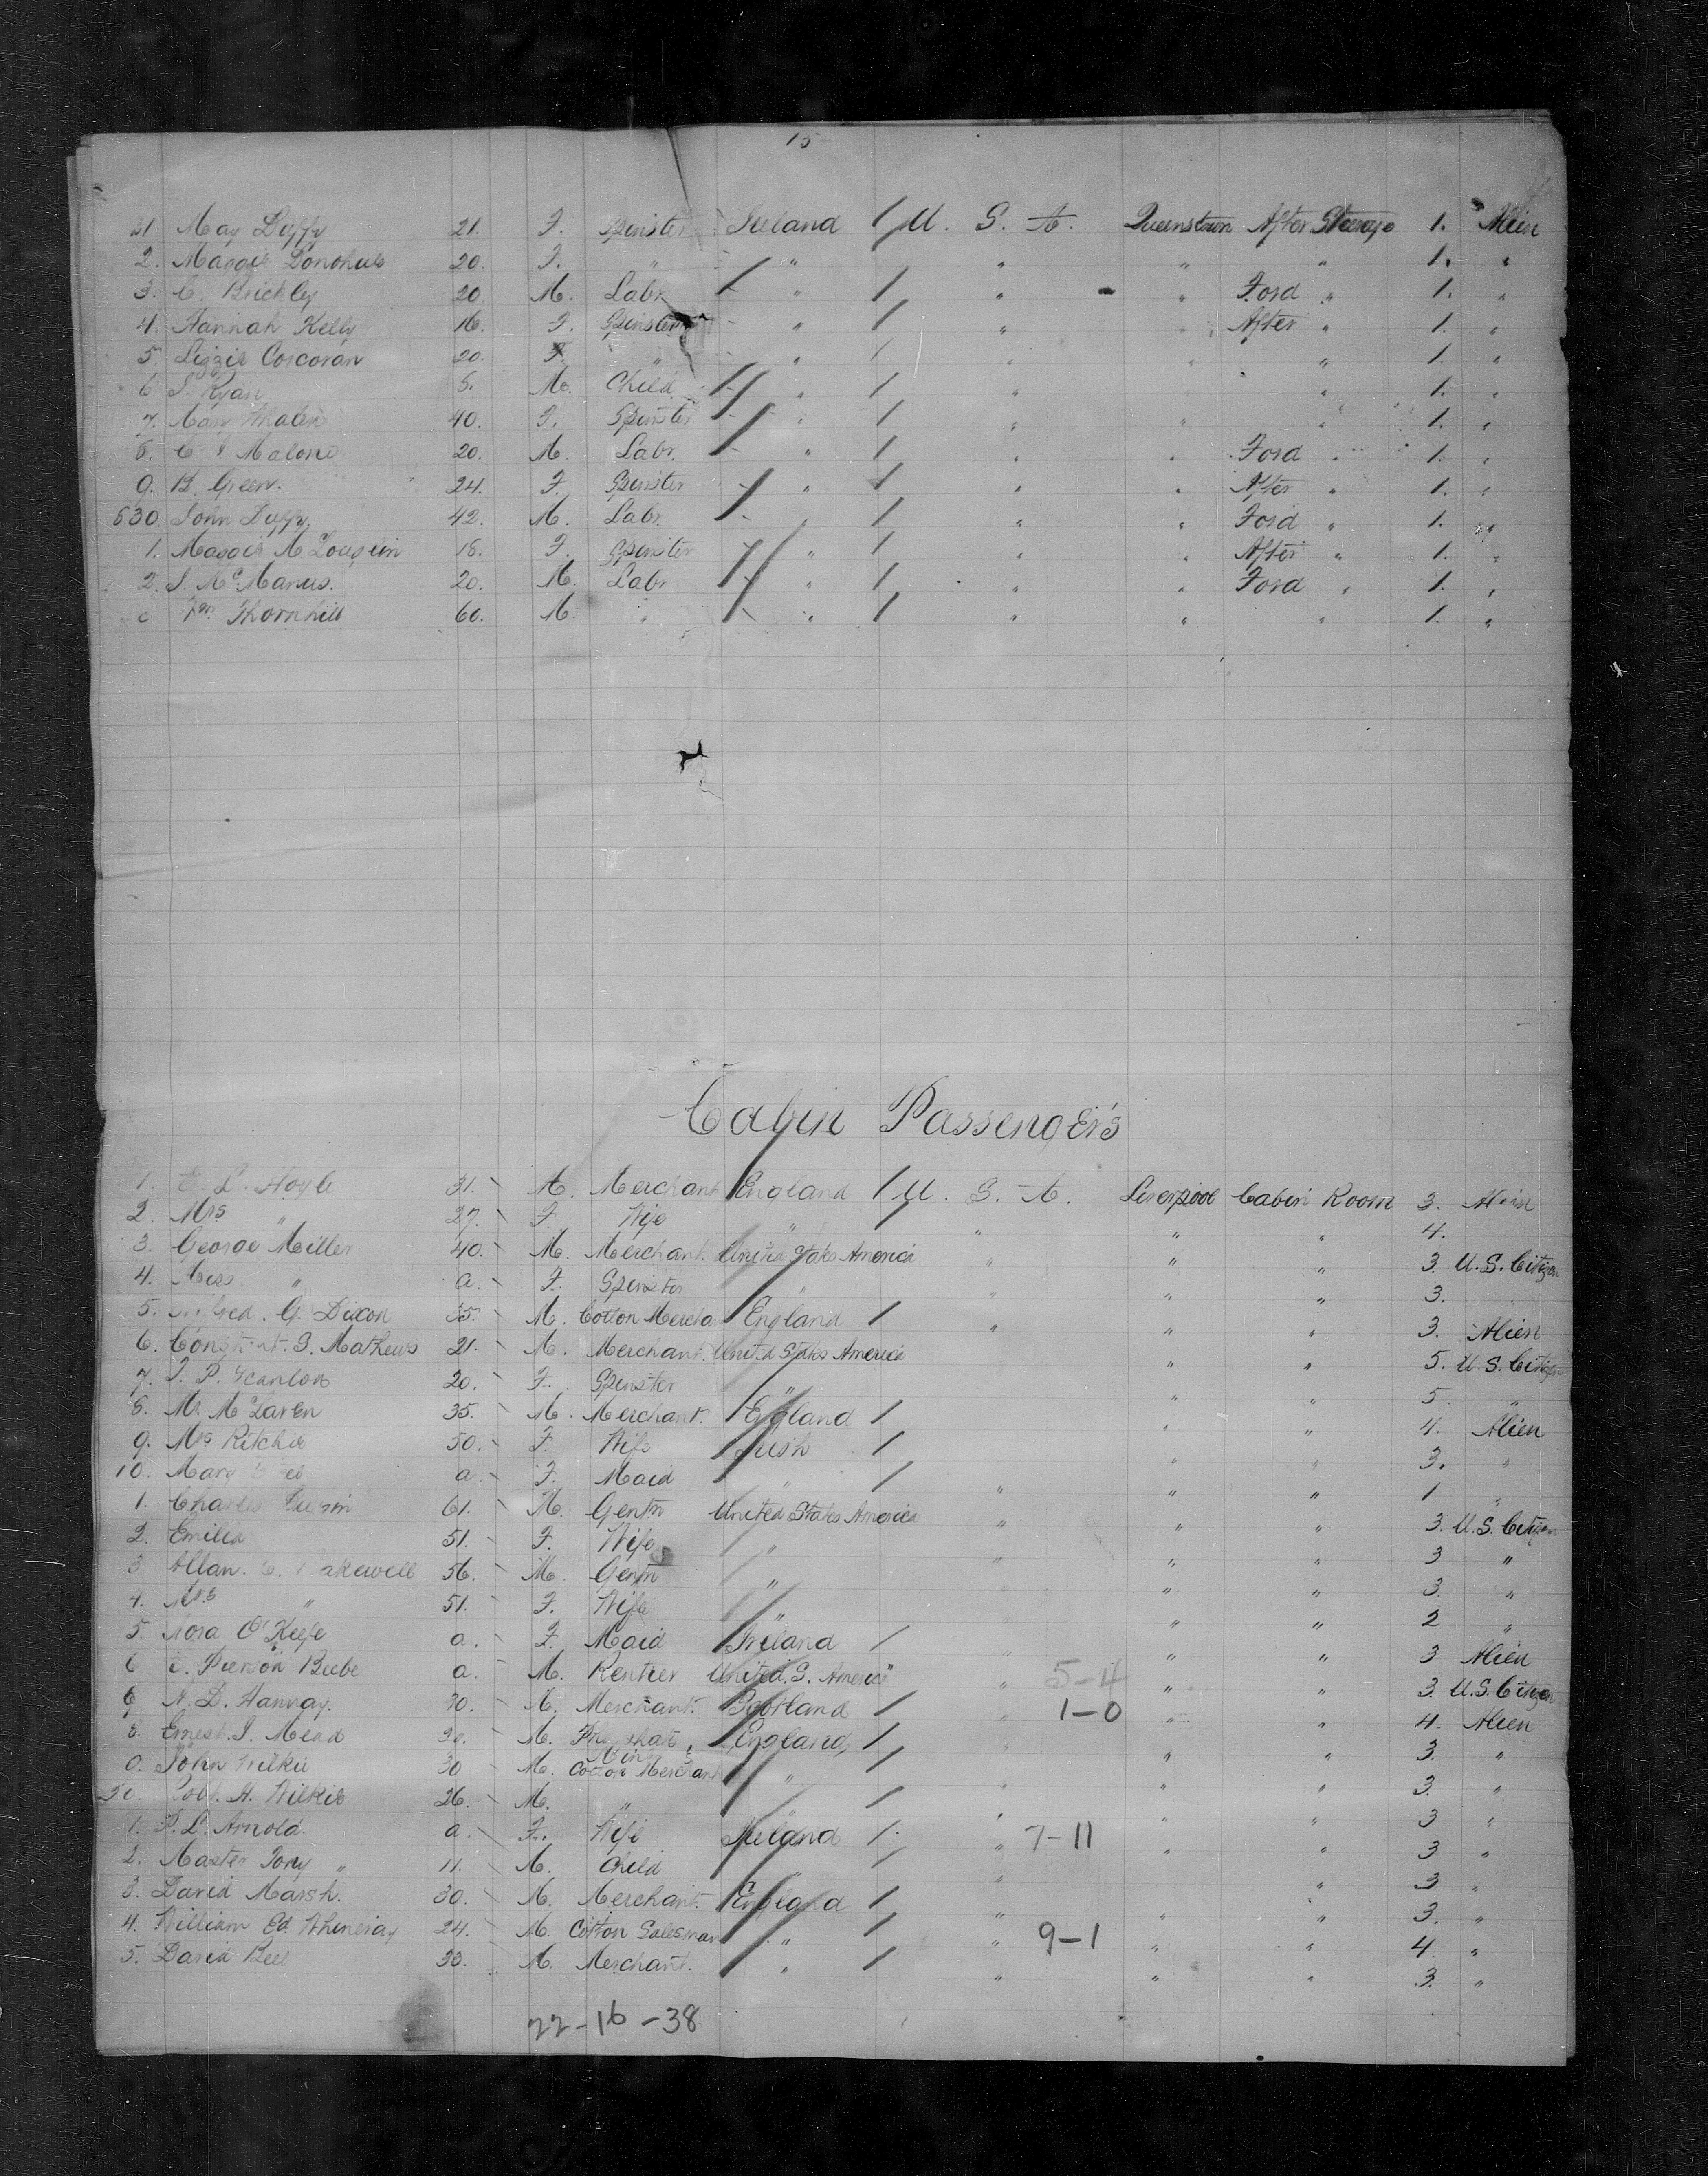 15
21 May Duffy 21. F. Spinster Ireland / U. S. A. Queenstown After Steerage 1. Alien
2. Maggie Donohue 20. F. " " " " " 1. "
3. C. Brickley 20 M. Labr " / " " Ford " 1. "
4. Hannah Kelly 16. F. Spinster " / " " After " 1. "
5 Lizzie Corcoran 20. F. " " / " " " 1. "
6 J. Ryan M. Child " / " " 1. "
7. Mary Whalen 40. F. Spinster " / " " " 1. "
8. Malone 20. M. Labr. " / " " Ford " 1. "
9. B. Green. 24. F. Spinster " / " " After " 1. "
630. John Duffy 42. M. Labr. " / " " Ford " 1. "
1. Maggie 18. F. Spinster " / " " After " 1. "
2. J. McManus. 20. M. Labr " / " " Ford " 1. "
Thornhill 60. M. " " / " " " 1. "
Cabin Passengers
1. E. L. Hoyle 31. M. Merchant England / U. S. A. Liverpool Cabin Room 3. Alien
2. Mrs " 27. F. Wife " / " " " 4.
3. George Miller 40. M. Merchant. United States America " " " 3. U.S. Citizen
4. Miss " a. F. Spinster " " " " 3. "
5. G. Dixon 35. M. Cotton Mercha England / " " " 3. Alien
6. S. Mathews 21. M. Merchant. United States America " " 5. U.S. Citizen
7. Scanlon 20. F. Spinster " " " 5. "
8. M. McLaren 35. M. Merchant. England / " " 4. Alien
9. Mrs Ritchie 50. F. Wife Irish / " " 3. "
10. Mary a. F. Maid " / " " " 1 "
1. Charles 61. M. Gentn United States America " " " 3. U.S. Citizen
2. Emilia 51. F. Wife " " " " 3 "
3 Allan. 56. M. Gentn " " " 3. "
4. Mrs " 51. F. Wife " " " 2 "
5. Nora O'Keefe a. F. Maid Ireland / " " " 3 Alien
6 Pierson Beebe a. M. Rentier United. S. America " 5-4 " " 3. U.S. Citizen
N. D. Hannay. 30. M. Merchant. Scotland / " 1-0 " " 4. Alien
8. Ernest. J. Mead M. England / " " 3. "
John Wilkie 30 M. Cotton Merchant " / " " " 3. "
Robt. H. Wilkie 26. M. " / " " " 3 "
1. P. L. Arnold. a. F. Wife Ireland / " 7-11 " " 3 "
2. Master Tony " 11. M. Child " / " " 3 "
3. David Marsh. 30. M. Merchant. England / " " " 3. "
4. William Ed. Whineray 24. M. Cotton Salesman " / " 9-1 " " 4. "
5. David M. Merchant. " / " " " 3. "
22-16-38